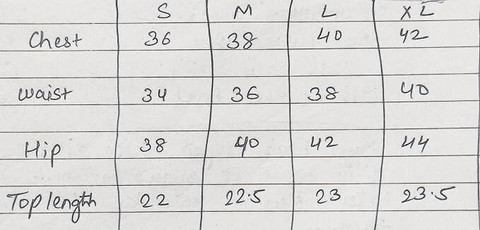 S M L XL
Chest 36 38 40 42
Waist 34 36 38 40
Hip 38 40 42 44
Top length 22 22.5 23 23.5